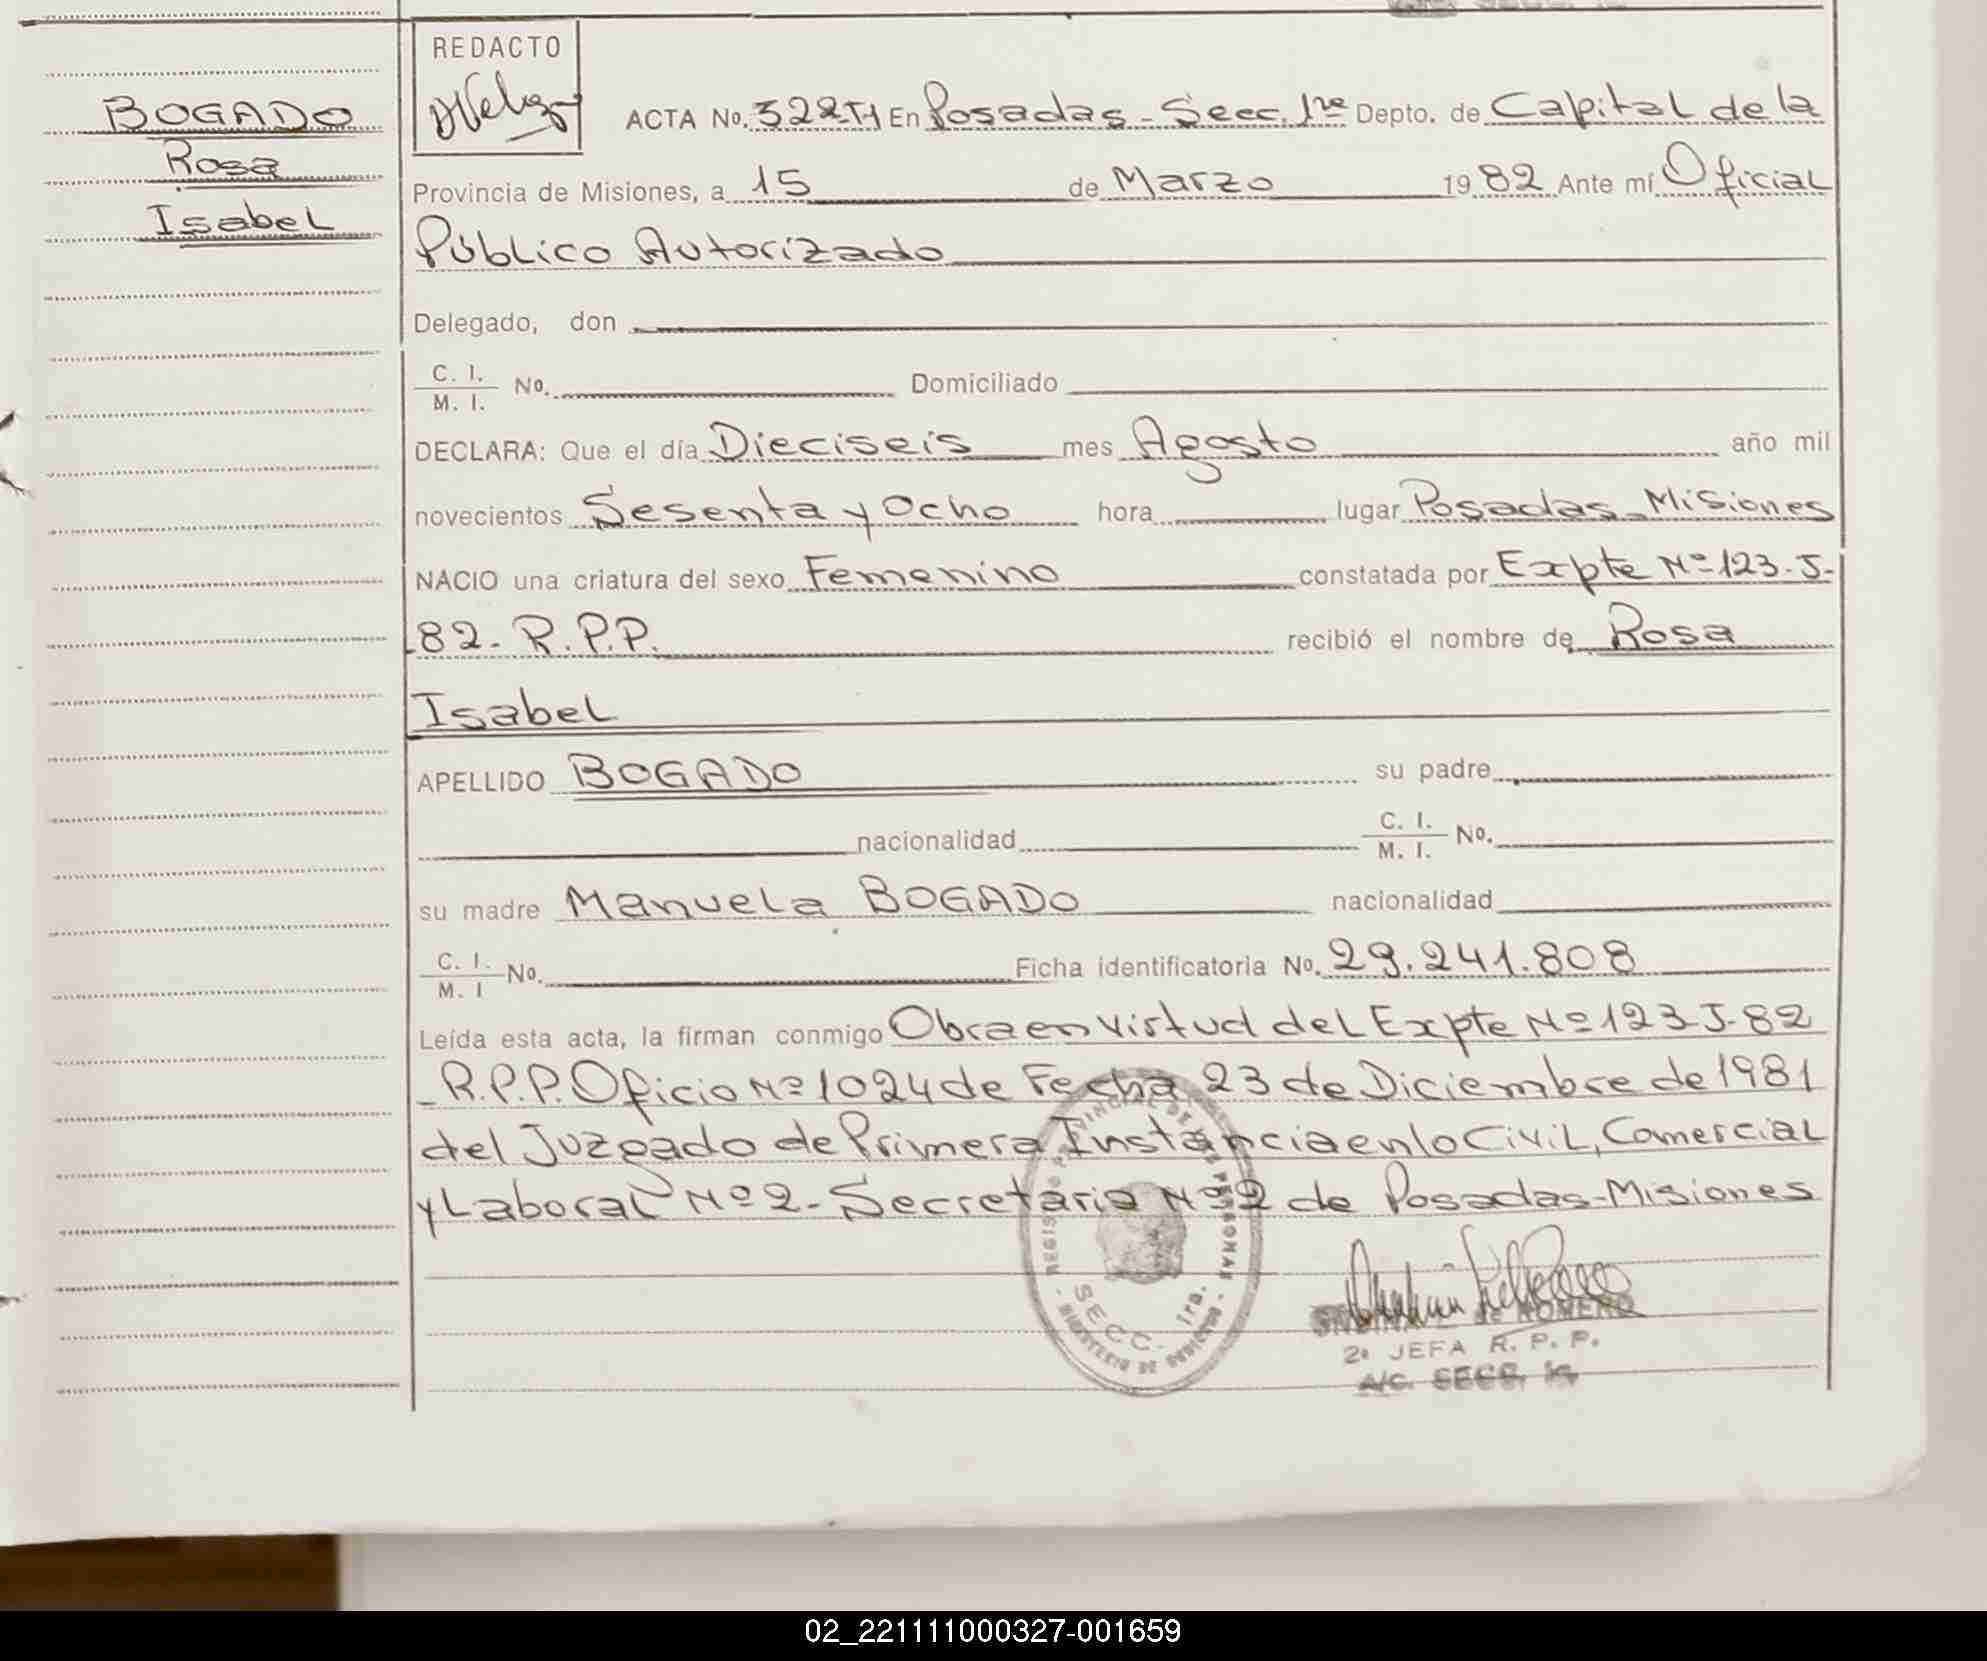 REDACTO
BOGADO
Rosa
Isabel
ACTA No. 322-T-1 En Posadas - Secc. 1ra Depto. de Capital de la
Provincia de Misiones, a 15 de Marzo 19 82 Ante mí Oficial
Público Autorizado
Delegado, don
C. I.
M. I. No. Domiciliado
DECLARA: Que el día Dieciseis mes Agosto año mil
novecientos Sesenta y Ocho hora lugar Posadas - Misiones
NACIO una criatura del sexo Femenino constatada por Expte Nº 123-J-
82- R.P.P. recibió el nombre de Rosa
Isabel
APELLIDO BOGADO su padre
nacionalidad C. I.
M. I. No.
su madre Manuela BOGADO nacionalidad
C. I.
M. I No. Ficha identificatoria No. 29.241.808
Leída esta acta, la firman conmigo Obra en virtud del Expte Nº 123-J-82
- R.P.P. Oficio Nº 1024 de Fecha 23 de Diciembre de 1981
del Juzgado de Primera Instancia en lo Civil, Comercial
y Laboral Nº 2 - Secretaria Nº 2 de Posadas - Misiones
REGISTRO PROVINCIAL DE LAS PERSONAS
SECC. 1ra.
MINISTERIO DE GOBIERNO
de ROMERO
2ª JEFA R. P. P.
A/C. SECC. 1ª
02_221111000327-001659